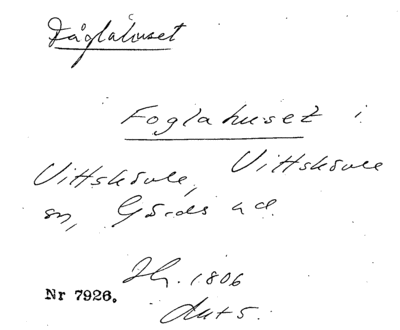 Fåglahuset
Foglahuset i
Vittskövle, Vittskövle
sn, Gärds hd.
Hy. 1806
Nr 7926.
Akt 5.